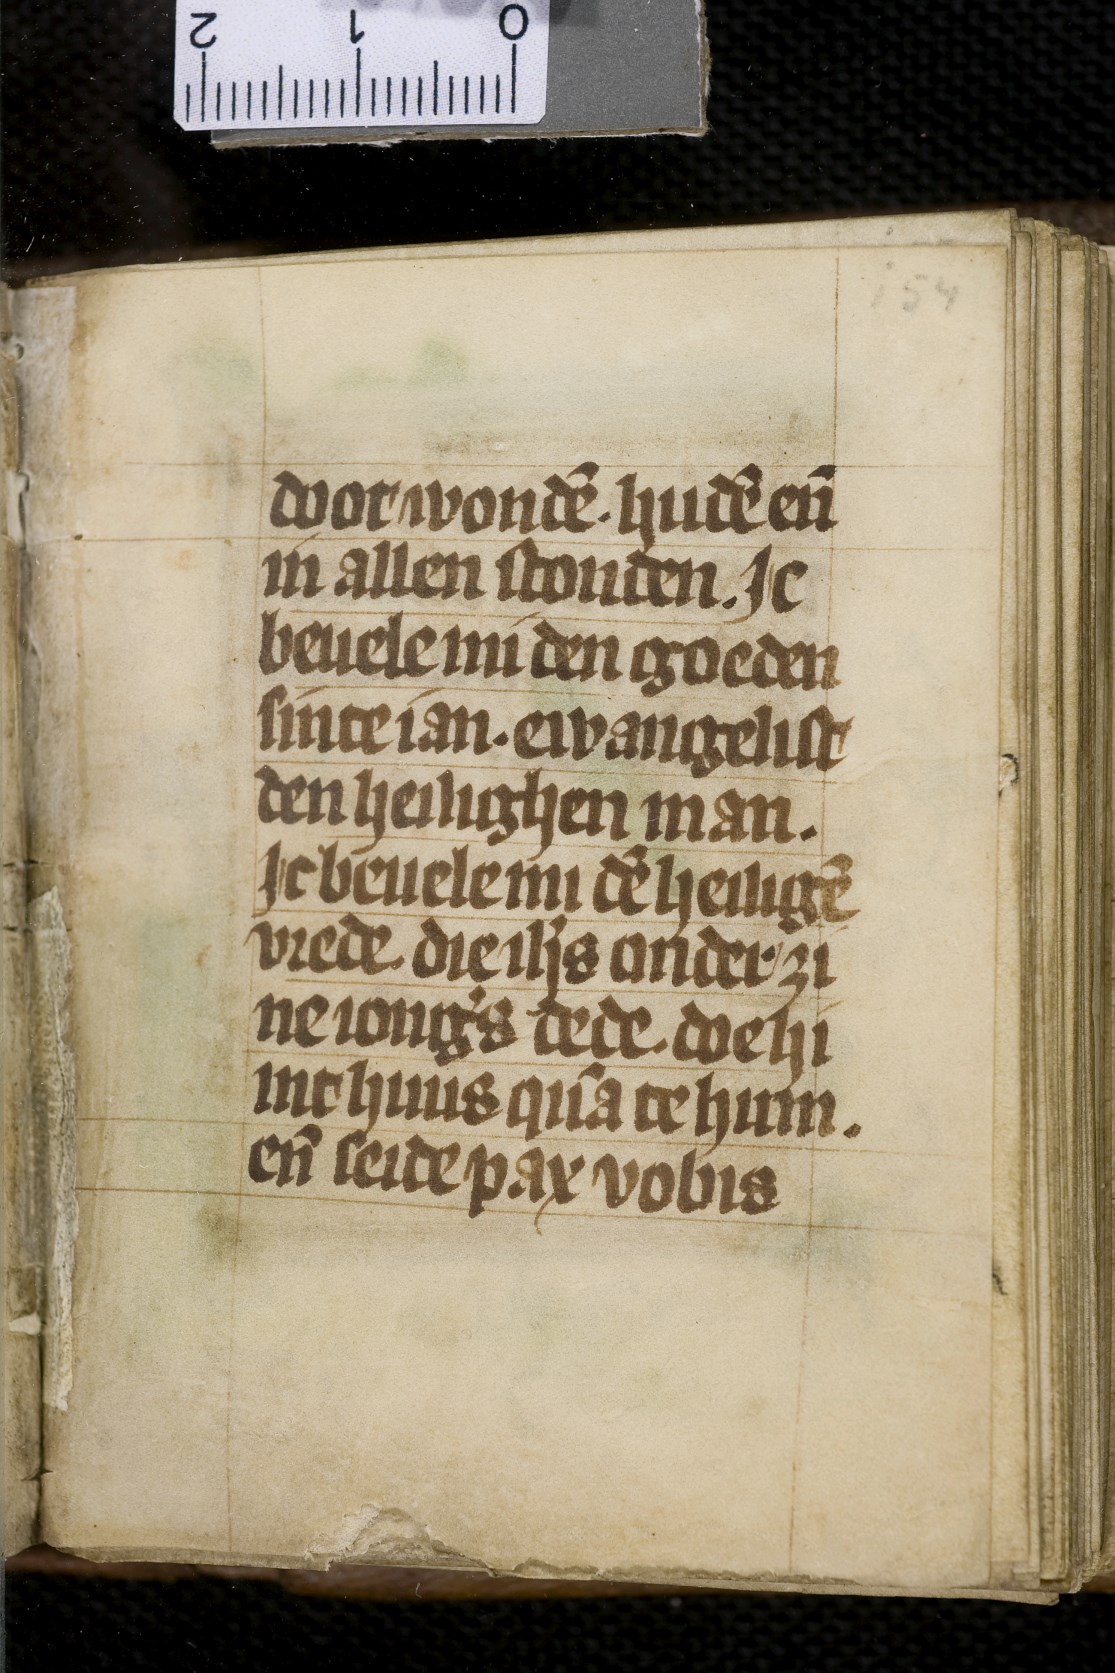 2 1 0
154
doot wondē. hudē en̄
in allen stonden. Ic
beuele mi den goeden
sinte ian. ewangelist
den heilighen man.
Ic beuele mi dē heiligē
vrede. die ih's onder zi
ne iong's dede. doe hi
int huus qūa te hum.
en̄ seide pax vobis